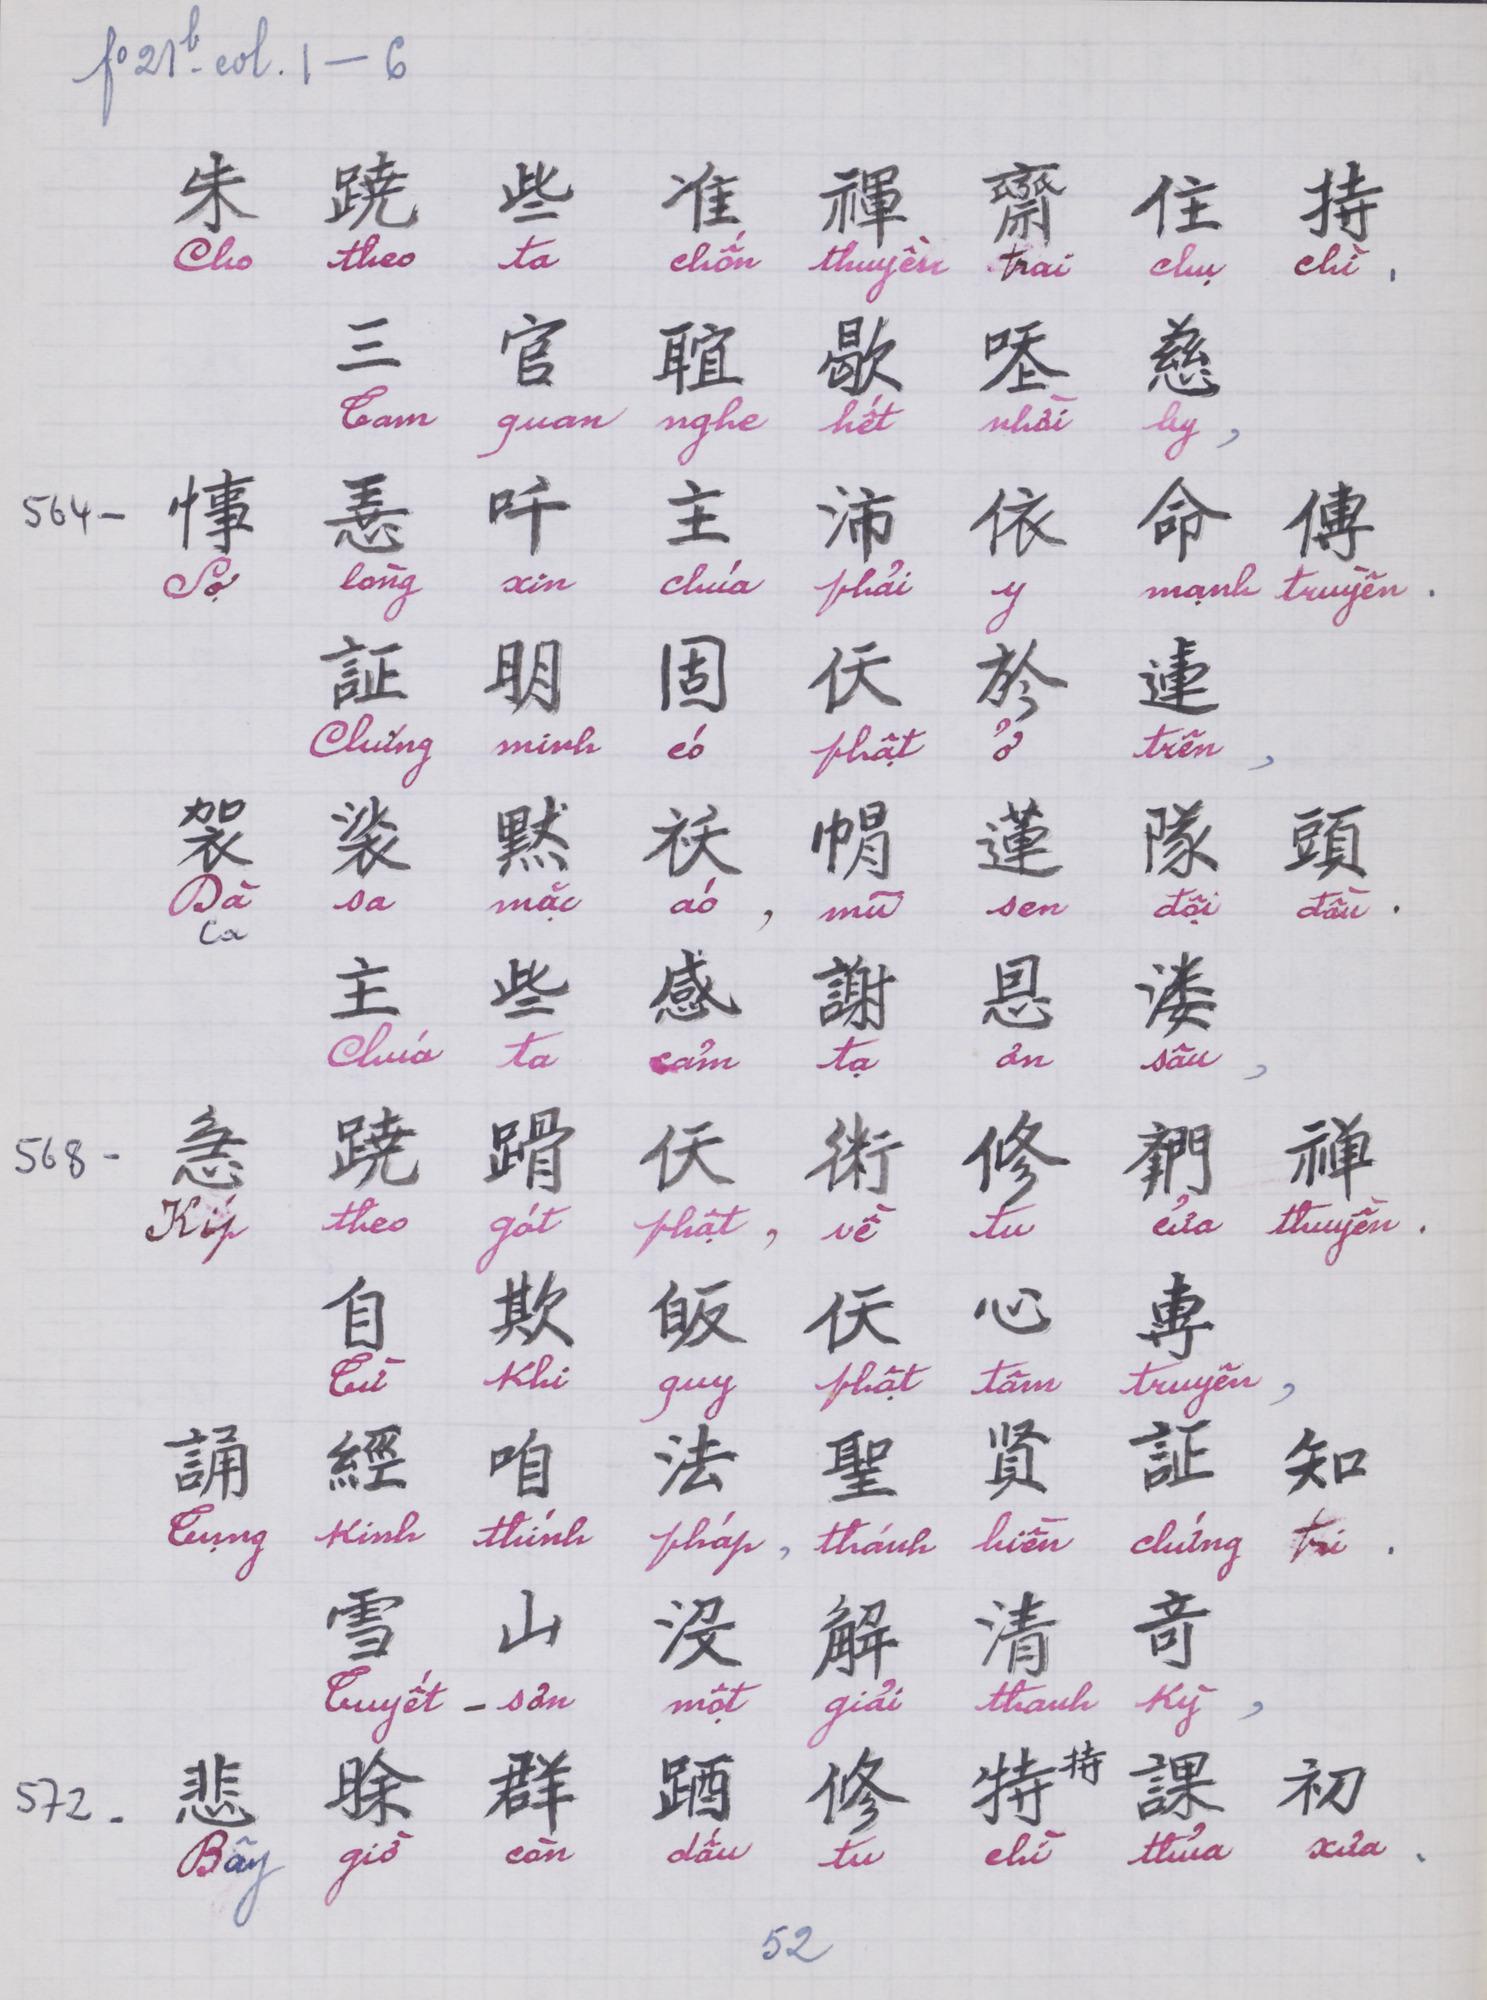 fo 21b - col. 1 — 6
朱 蹺 些 准 禪 齋 住 持
Cho theo ta chốn thuyền trai chụ chì.
三 官 𦖑 歇 慈
Tam quan nghe hết nhời ly,
564- 㤖 吀 主 沛 依 命 傳
Sợ lòng xin chúa phải y mạnh truyền.
証 明 固 伕 於 連
Chứng minh có phật ở trên,
袈 裟 默 襖 帽 蓮 隊 頭
Dà sa mặc áo, mũ sen đội đầu.
Ca
主 些 感 謝 恩 溇
Chúa ta cảm tạ ơn sâu,
568- 急 蹺 𨃴 伕 術 修 𨷯 禅
Kíp theo gót phật, về tu cửa thuyền.
自 欺 皈 伕 心 專
Từ khi quy phật tâm truyên,
誦 經 咱 法 聖 贤 証 知
Tụng kinh thính pháp, thánh hiền chứng tri.
雪 山 沒 解 清 奇
Tuyết - sơn một giải thanh kỳ,
572- 悲 群 修 特 持 課 初
Bây giờ còn dấu tu chì thủa xưa.
52